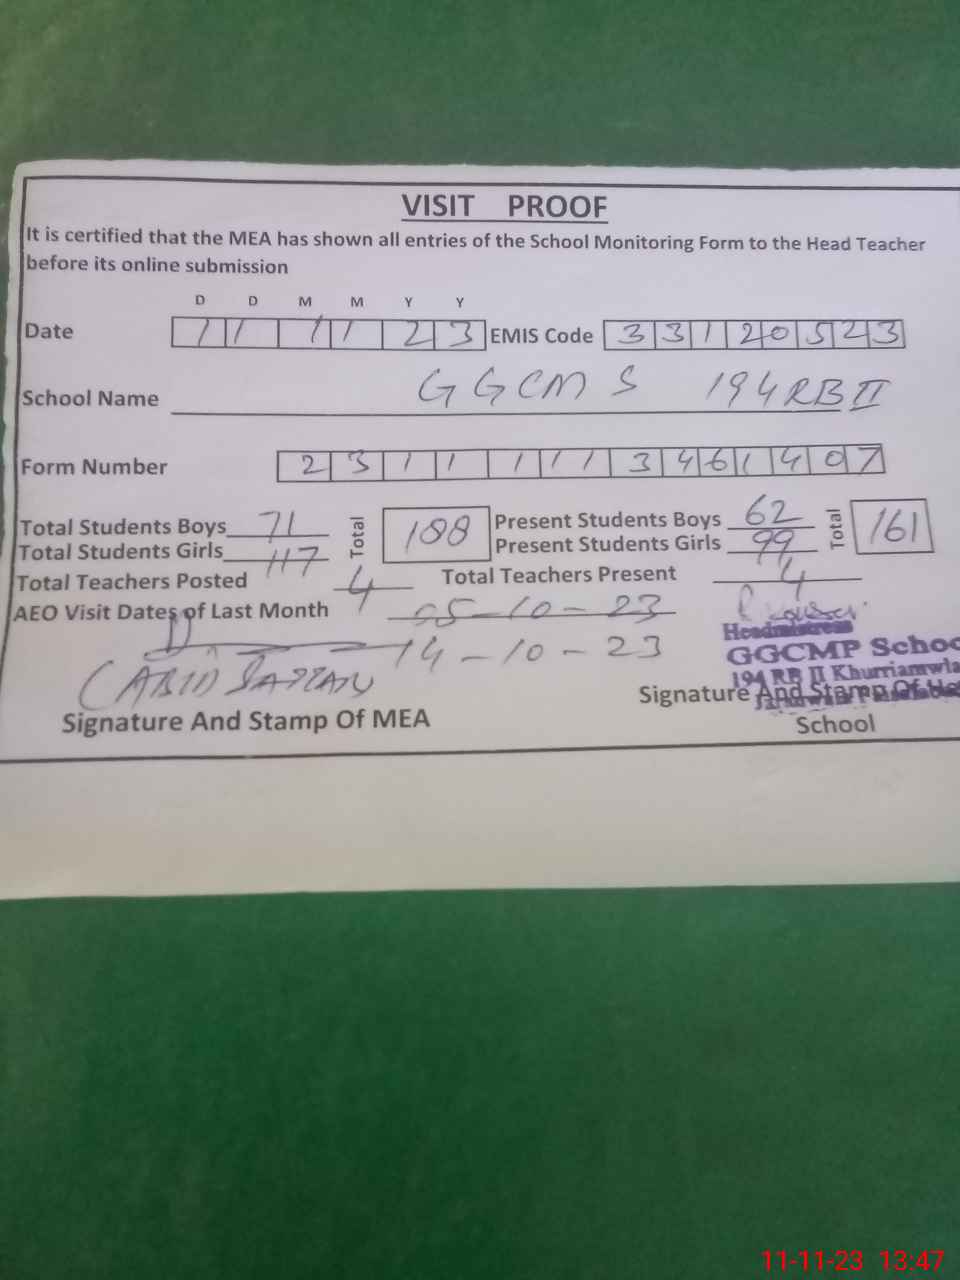 VISIT PROOF
It is certified that the MEA has shown all entries of the School Monitoring Form to the Head Teacher
before its online submission
D D M M Y Y
Date 1 1 1 1 2 3 EMIS Code 3 3 1 2 0 5 2 3
School Name GGCMS 194RB II
Form Number 2 3 1 1 1 1 1 3 4 6 1 4 0 7
Total Students Boys 71 Total 188 Present Students Boys 62 Total 161
Total Students Girls 117 Present Students Girls 99
Total Teachers Posted 4 Total Teachers Present 4
AEO Visit Dates of Last Month 05-10-23
14-10-23
Headmistress
GGCMP Schoo
194 RB II Khurrianwla
(ABID
Signature And Stamp Of MEA
Signature And Stamp Of He
School
11-11-23 13:47